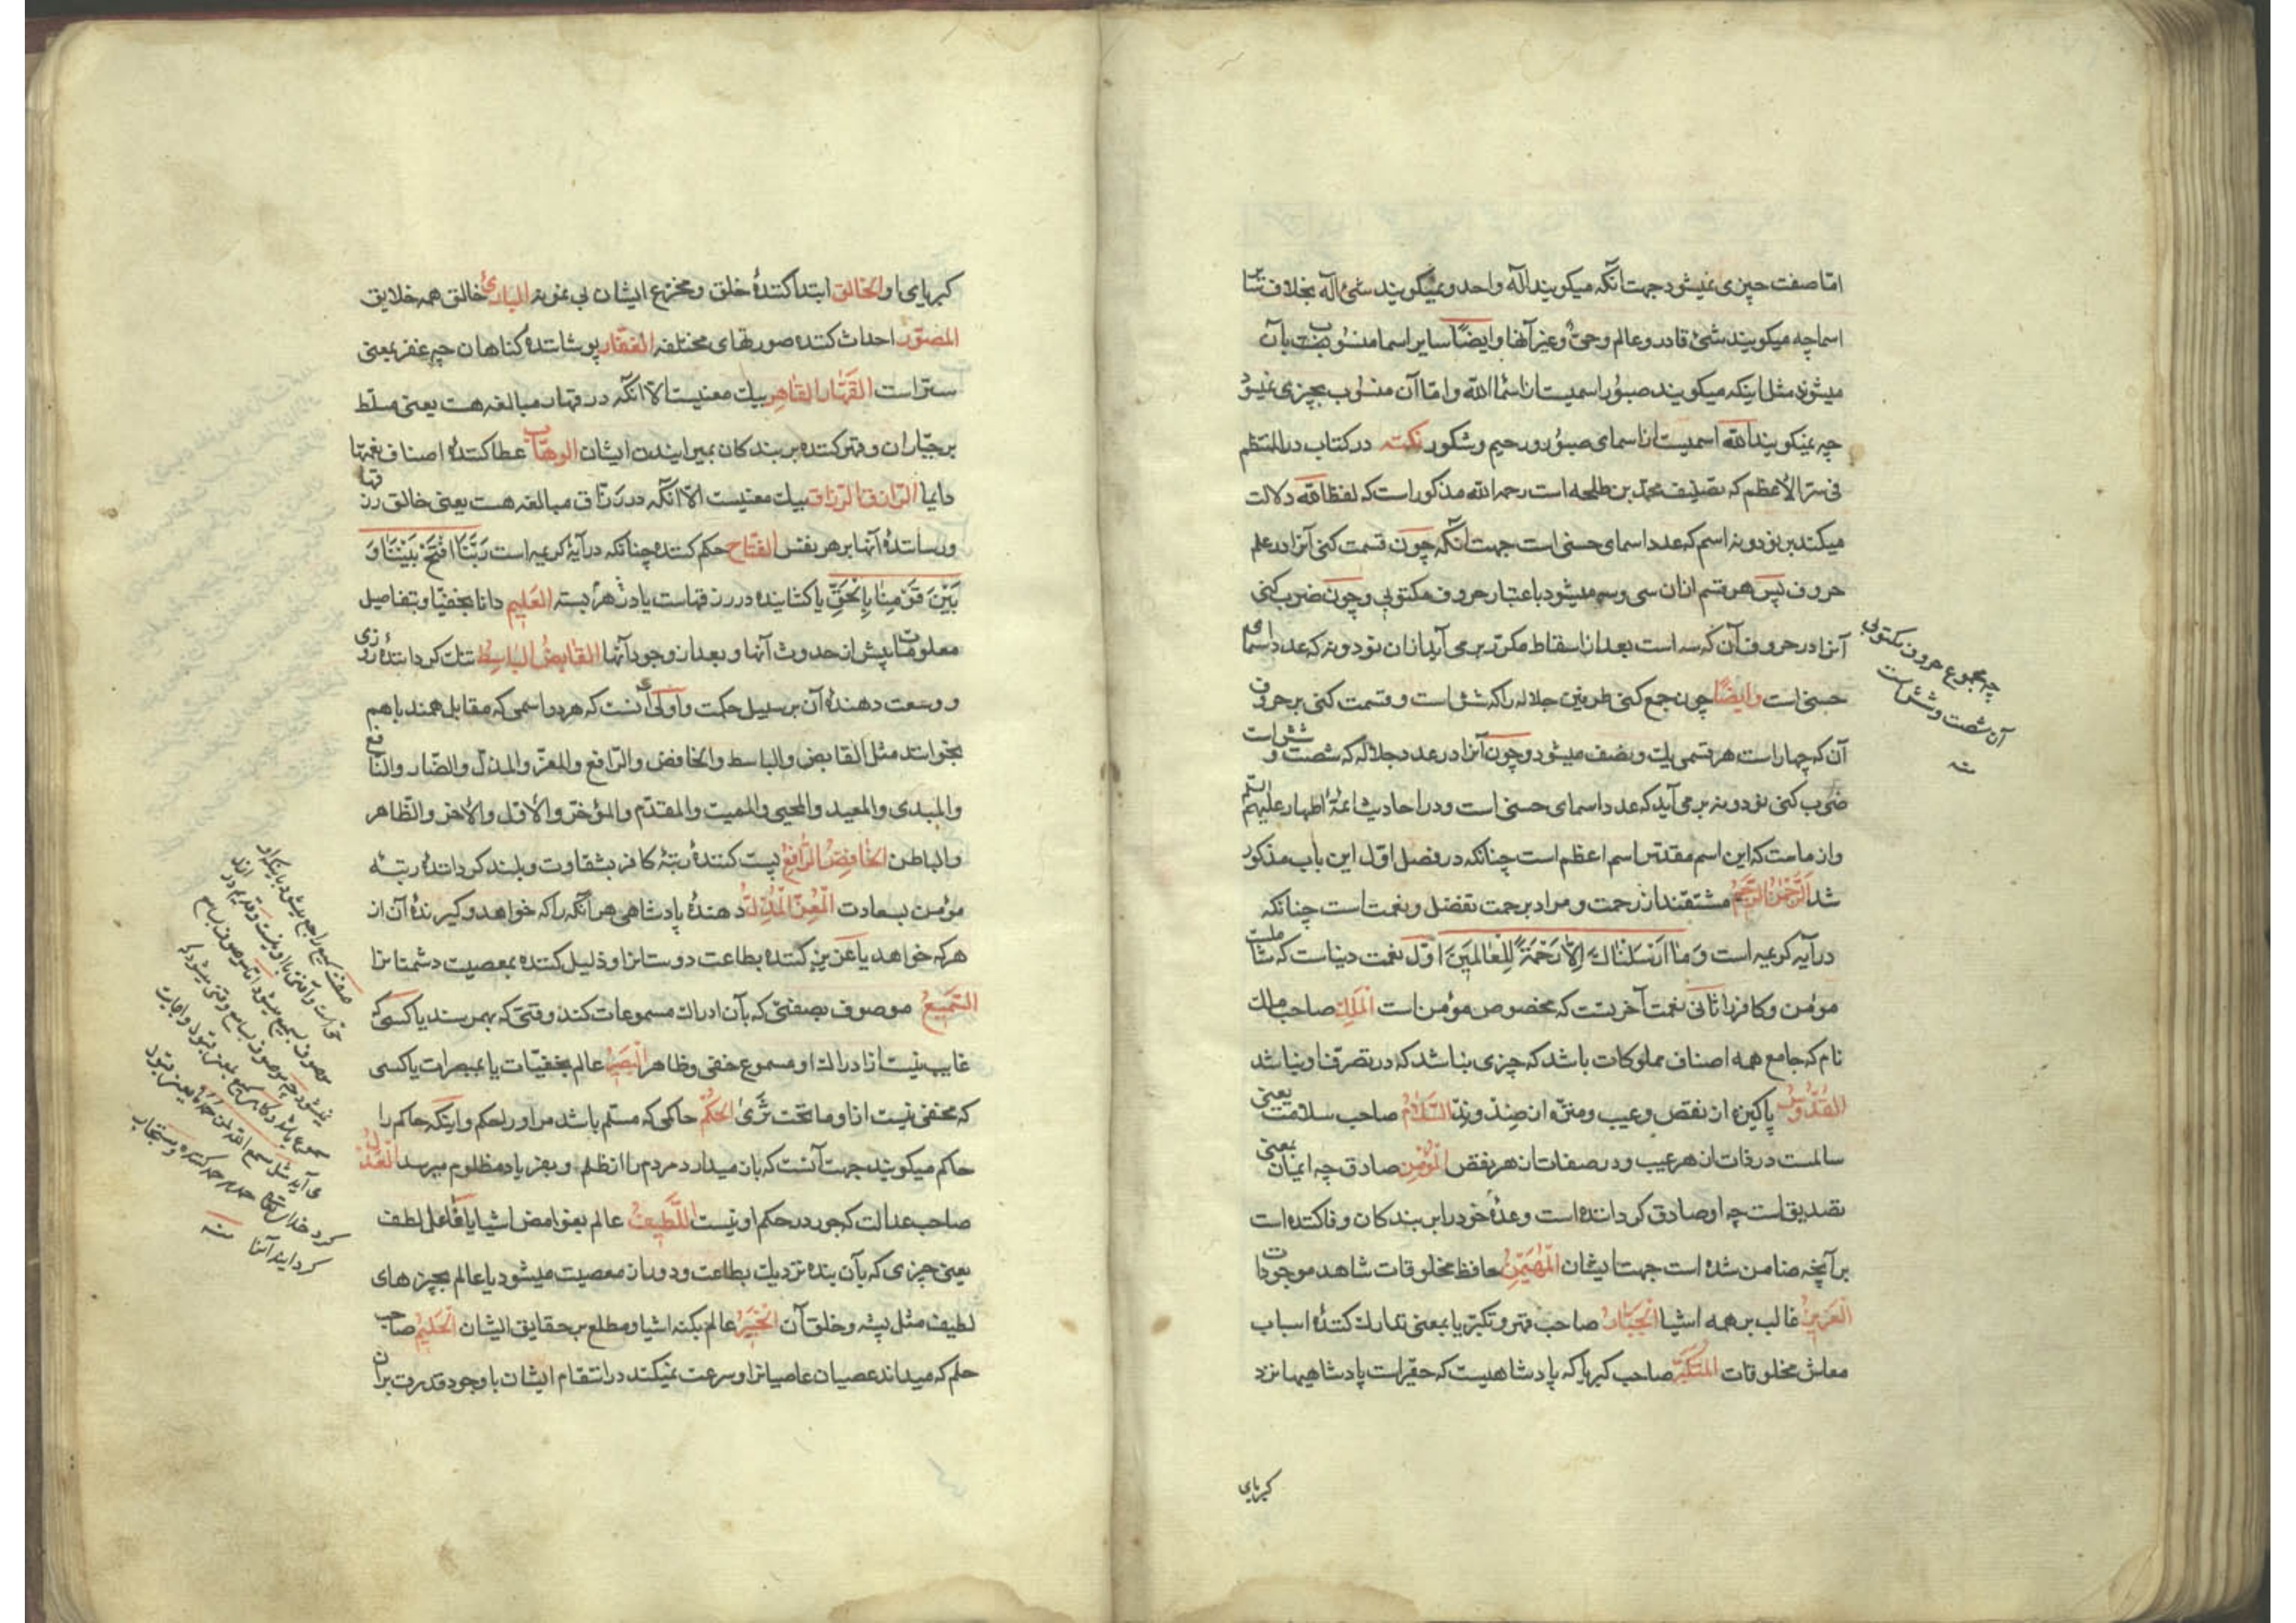 امّا صفت چیزی نمیشود جهت آنکه میکویند اله واحد و نمیکویند شیء اله بخلاف سایر
اسما چه میکویند شیء قادر و عالم و حیّ و غیر آنها و ایضاً سایر اسما منسوب بآن
میشوند مثل اینکه میکویند صبور اسمیست از اسماء الله و امّا آن منسوب بچیزی نمیشود
چه نمیکویند الله اسمیست از اسمای صبور و رحیم و شکور نکته در کتاب درّ المنتظم
فی سرّ الاعظم که تصنیف محمّد بن طلحه است رحمه الله مذکور است که لفظ الله دلالت
میکند بر نود و نه اسم که عدد اسمای حسنی است جهت آنکه چون قسمت کنی آنرا در علم
حروف پس هر قسم ازان سی و سه میشود باعتبار حروف مکتوبی و چون ضرب کنی
آنرا در حروف آن که سه است بعد از اسقاط مکرّر بر می آید ازان نود و نه که عدد اسمای
حسنی است و ایضاً چون جمع کنی طرفین جلاله را که شش است و قسمت کنی بر حروف
آن که چهار است هر قسمی یك و نصف میشود و چون آنرا در عدد جلاله که شصت و شش است
ضرب کنی نود و نه بر می آید که عدد اسمای حسنی است و در احادیث ائمّۀ اطهار علیهم السّلم
وارد ماست که این اسم مقدّس اسم اعظم است چنانکه در فصل اوّل این باب مذکور
شد الرّحمن الرّحیم مشتقند از رحمت و مراد برحمت تفضل و نعمت است چنانکه
در آیه کریمه است وَ مَا اَرْسَلْنَاكَ اِلاَّ رَحْمَةً لِلْعَالَمینَ اوّل نعمت دنیاست که شاملست
مؤمن و کافر را ثانی نعمت آخرتست که مخصوص مؤمن است الملك صاحب ملك
تام که جامع همه اصناف مملوکات باشد که چیزی نباشد که در تصرّف او نباشد
القدّوس پاکیزه از نقص و عیب و منزّه از ضدّ و ندّ السّلام صاحب سلامت یعنی
سالمست در ذات از هر عیب و در صفات از هر نقص المؤمن صادق چه ایمان بمعنی
تصدیق است چه او صادق کرداننده است وعدۀ خود را بر بندکان وفا کننده است
بر آنچه ضامن شده است جهت ایشان المهیمن حافظ مخلوقات شاهد موجودات
العزیز غالب بر همه اشیا الجبّار صاحب قهر و تکبّر یا بمعنی تدارك کنندۀ اسباب
معاش مخلوقات المتکبّر صاحب کبریا که پادشاهیست که حقیر است پادشاهیها نزد
کبریای
چه مجموع حروف مکتوبی
آن شصت و شش است
منه
کبریای او الخالق ابتدا کنندۀ خلق و مخترع ایشان بی نمونه الباریء خالق همه خلایق
المصوّر احداث کننده صورتهای مختلفه الغفّار پوشاننده کناهان چه غفر بمعنی
ستر است القهّار القاهر بیك معنیست الاّ آنکه در قهار مبالغه هست یعنی مسلّط
بر جبّاران و قهر کننده بر بندکان بمیرانیدن ایشان الوهّاب عطا کنندۀ اصناف نعمتها
دایما الرّازق الرّزاق بیك معنیست الاّ آنکه در رزّاق مبالغه هست یعنی خالق رزقها
و رسانندۀ آنها بر هر نفس الفتّاح حکم کننده چنانکه در آیۀ کریمه است رَبَّنَا افْتَحْ بَیْنَنَا وَ
بَیْنَ قَوْمِنَا بِالْحَقِّ یا کشاینده در رزقهاست یا در هر بسته العلیم دانا بخفیّا و بتفاصیل
معلومات پیش از حدوث آنها و بعد از وجود آنها القابض الباسط تنك کرداننده روزی
و وسعت دهندۀ آن بر سبیل حکمت و اولی آنست که هر دو اسمی که مقابل همند باهم
بخوانند مثل القابض والباسط والخافض والرّافع والمعزّ والمذلّ والضّار والنّافع
والمبدی والمعید والمحیی والممیت والمقدّم والمؤخّر والاوّل والاخر والظّاهر
والباطن الخافض الرّافع پست کنندۀ رتبۀ کافر بشقاوت و بلند کردانندۀ رتبۀ
مؤمن بسعادت المعزّ المذلّ دهندۀ پادشاهی هر آنکه را که خواهد و کیرندۀ آن از
هر که خواهد یا عزیز کننده بطاعت دوستانرا و ذلیل کننده بمعصیت دشمنانرا
السّمیع موصوف بصفتی که بآن ادراك مسموعات کند وقتی که بهم رسند یا کسی که
غایب نیست از ادراك او مسموع خفی و ظاهر البصیر عالم بخفیّات یا بمبصرات یا کسی
که مخفی نیست ازو ما تحت ثری الحکم حاکمی که مسلّم باشد مر او را حکم و اینکه حاکم را
حاکم میکویند جهت آنست که باز میدارد مردم را از ظلم و بفریاد مظلوم میرسد العدل
صاحب عدالت که جور در حکم او نیست اللّطیف عالم بغوامض اشیا یا فاعل لطف
یعنی چیزی که بآن بنده نزدیك بطاعت و دور از معصیت میشود یا عالم بچیزهای
لطیف مثل پشه و خلق آن الخبیر عالم بکنه اشیا و مطلع بر حقایق ایشان الحلیم صاحب
حلم که میداند عصیان عاصیانرا و سرعت نمیکند در انتقام ایشان با وجود قدرت بران